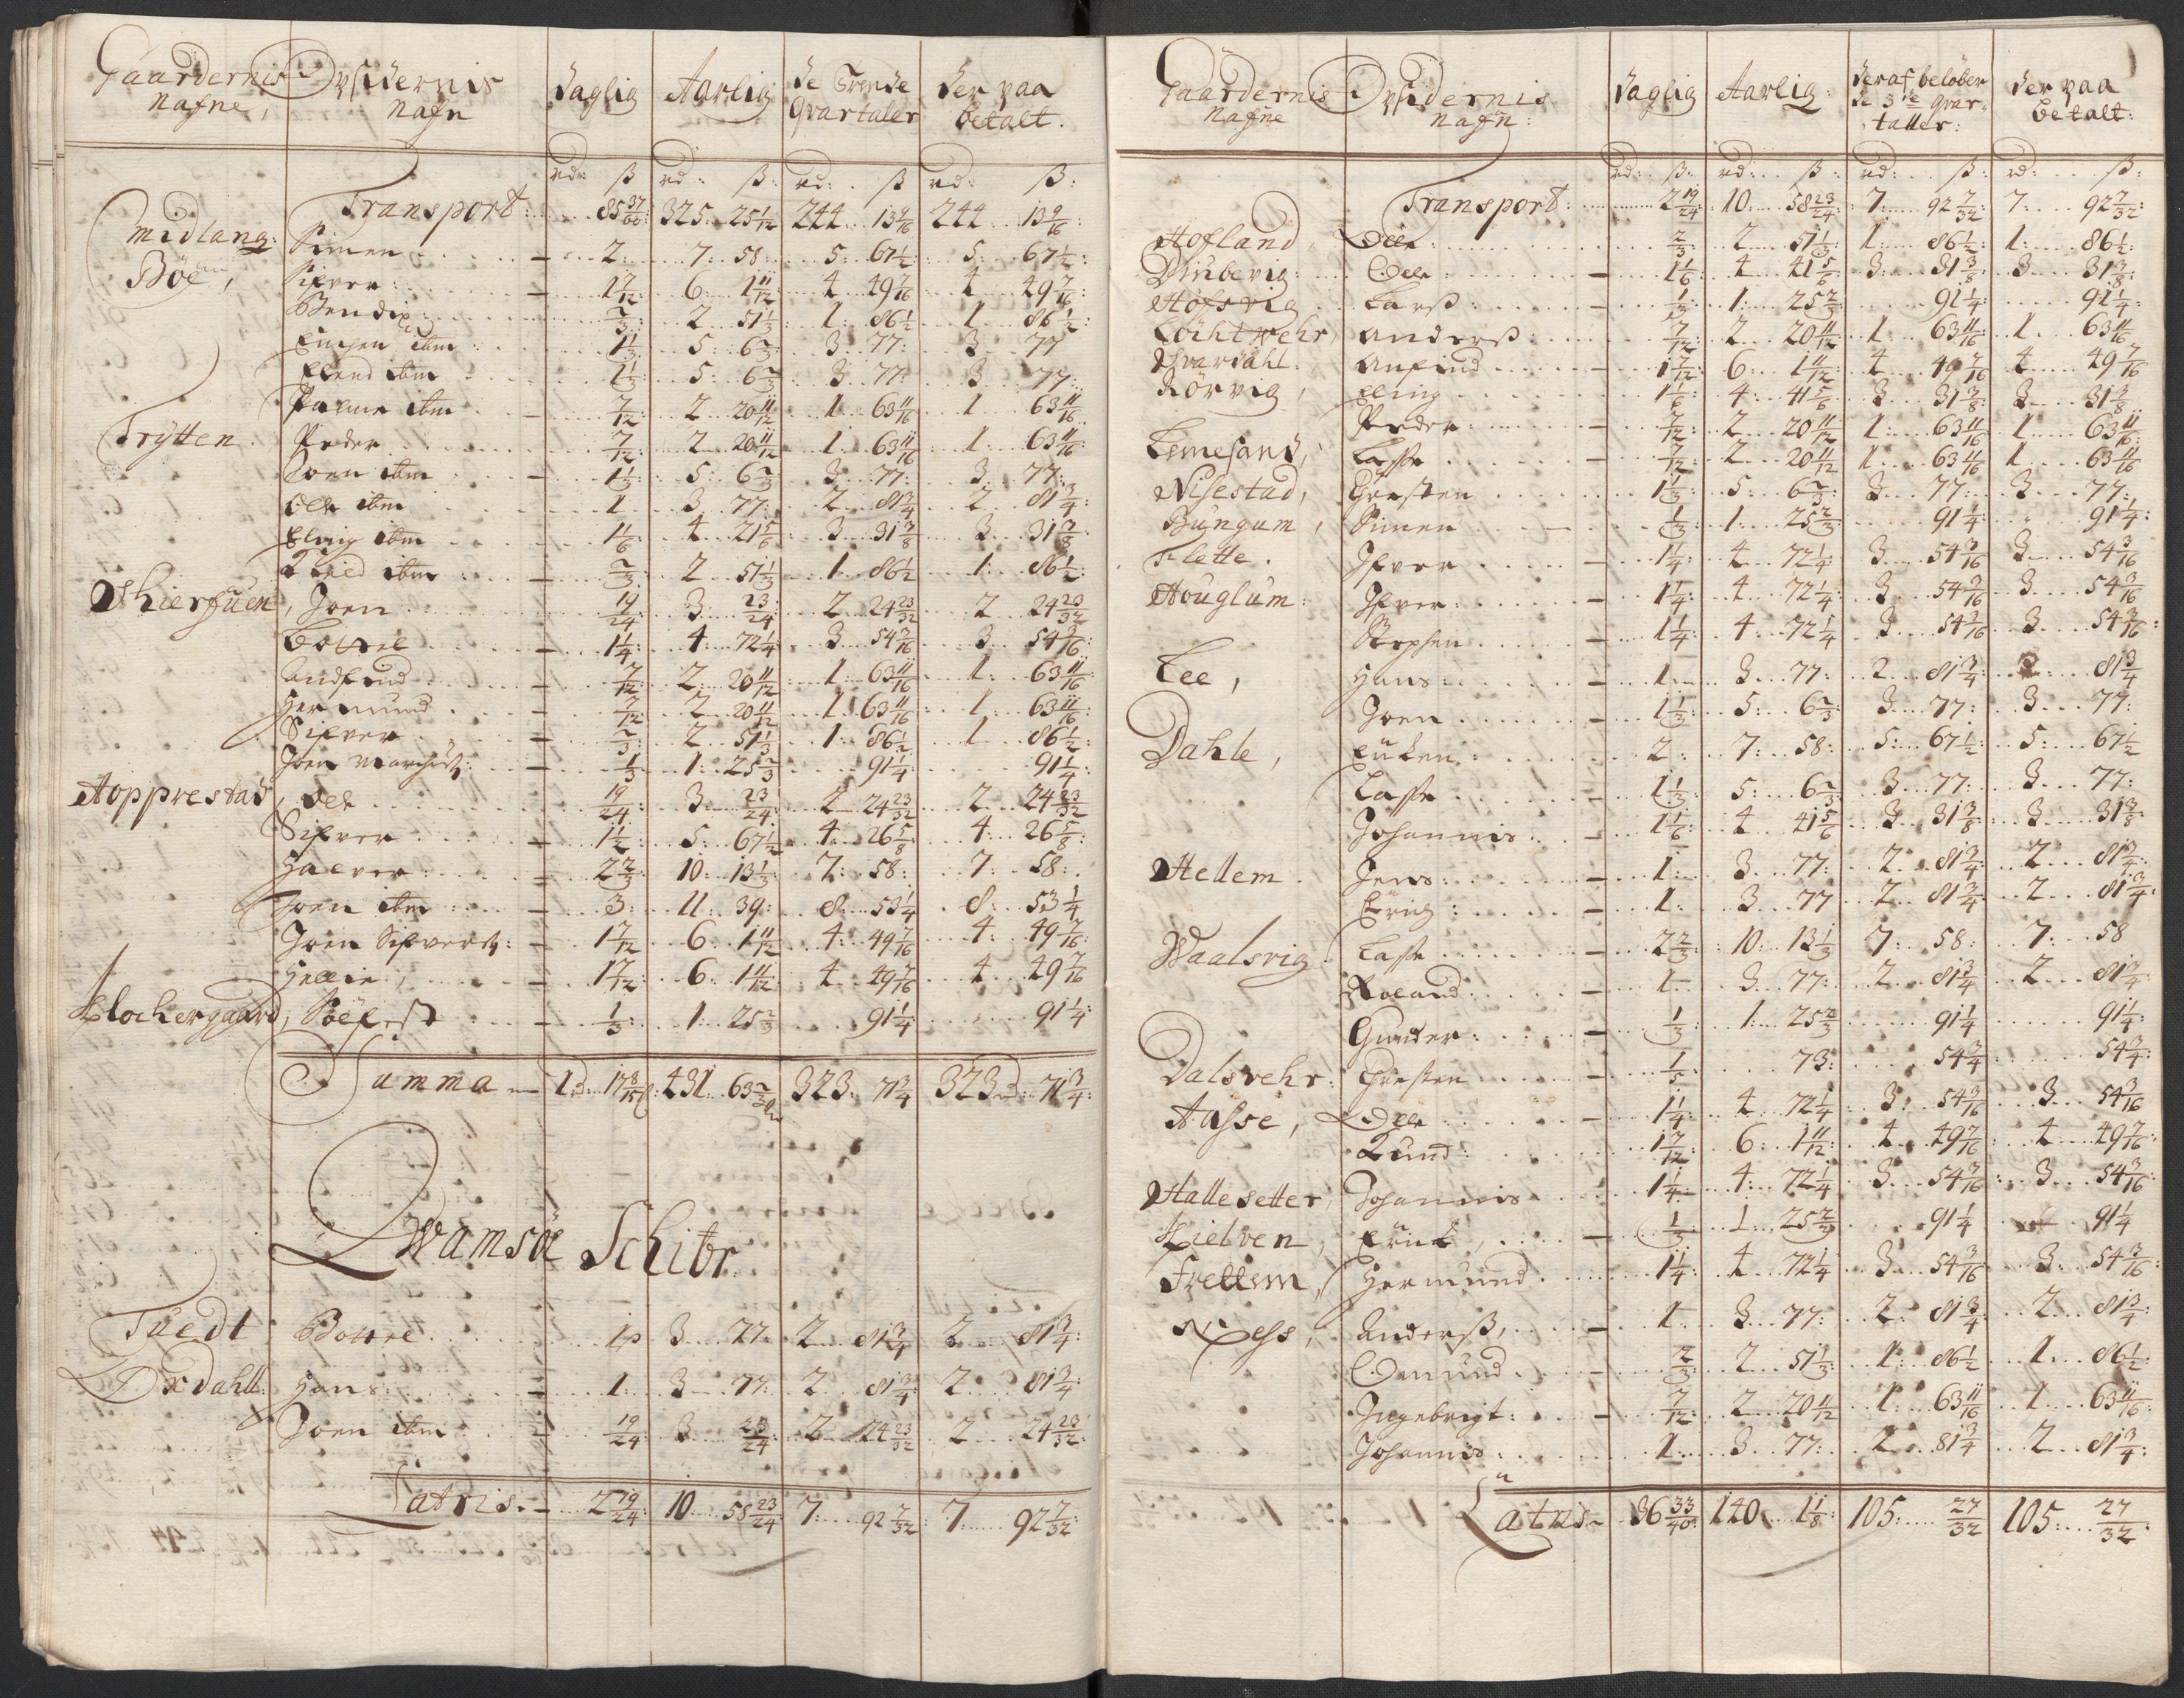 Gaardernis Nafne, Opsidernis Nafn Daglig Aarlig De Trende Qvartaler Der paa betalt.
rd: ß rd: ß: rd: ß rd: ß:
Transport: 85 37/60: 325: 25 1/12 244 13 9/16 244 13 9/16
Midlang: Böe, Simen 2: 7: 58: 5: 67 1/2: 5: 67 1/2:
Sifver 1 7/12: 6: 1 11/12 4 49 7/16 4 49 7/16
Bendix 2/3: 2 51 1/3 1: 86 1/2 1 86 1/2:
ibm 1 1/3: 5: 6 2/3 3: 77: 3 77
Elend ibm 1 1/3: 5: 6 2/3 3 77: 3 77:
ibm 7/12 2 20 11/12 1 63 11/16 1 63 11/16
Trÿtten Peder 7/12: 2 20 11/12 1: 63 11/16 1: 63 11/16:
Joen ibm 1 1/3: 5: 6 2/3 3: 77: 3: 77:
Ole ibm 1 3 77: 2 81 3/4 2 81 3/4:
Eling ibm 1 1/6 4 21 5/6 3 31 3/8 3: 31 3/8:
ibm 2/3: 2 51 1/3 1: 86 1/2 1: 86 1/2:
Joen 19/24: 3 23/24 2 24 23/32 2 24 23/32
Bottel 1 1/4: 4: 72 1/4 3 54 3/16 3: 54 3/16:
Andfind 7/12: 2: 20 11/12 1: 63 11/16 1: 63 11/16:
Hermund 7/12: 2 20 11/12 1: 63 11/16 1: 63 11/16:
Sifver 2/3: 2 51 1/3 1: 86 1/2 1 86 1/2:
Joen 1/3 1: 25 2/3 91 1/4: 91 1/4:
Hopprestad, Ole 19/24 3 23/24: 2 24 23/32 2 24 23/32
Sifver 1 1/2: 5: 67 1/2 4: 26 5/8: 4: 26 5/8:
Halver 2 2/3: 10: 13 1/3: 7: 58: 7: 58:
Joen ibm 3: 11: 39: 8: 53 1/4 8: 53 1/4
Joen Sifversß: 1 7/12 6: 1 11/12 4: 49 7/16 4: 49 7/16:
Hellie, 1 7/12: 6: 1 11/12: 4 49 7/16 4 49 7/16
Klochergaard, Söefest 1/3: 1: 25 2/3 91 1/4: 91 1/4:
Summa 1 rd: 17 8/15 ß: 431: 63 2/3 323: 71 3/4 323 rd: 71 3/4:
Qwamsöe Schibr
Tuedt Bottel 1 3 77: 2 81 3/4 2 81 3/4:
Hans 1: 3 77: 2 81 3/4: 2: 81 3/4:
Joen ibm 19/24: 3 23/24 2 24 23/32 2 24 23/32:
Latris 2 19/24: 10 58 23/24: 7: 92 7/32: 7 92 7/32:
Gaardernis Nafne Opsidernis Nafn: Daglig Aarlig: Deraf beløber de 3de Qvartaller: Der paa betalt:
rd: ß: rd: ß: rd: ß: rd: ß:
Transport: 2 19/24: 10: 58 23/24: 7: 92 7/32: 7: 92 7/32:
Hofland Ole 2/3: 2 51 1/3: 1: 86 1/2: 1: 86 1/2:
Diubevig: Ole 1 1/6: 4 41 5/6: 3: 31 3/8 3 31 3/8:
Höfsvig Larß 1/3: 1: 25 2/3: 91 1/4: 91 1/4:
Anderß 7/12: 2 20 11/12: 1 63 11/16 1 63 11/16
Svardahl Anfind 1 7/12: 6 1 11/12: 4 49 7/16 4 49 7/16
Rörvig, Eling 1 1/6 4: 41 5/6 3 31 3/8 3 31 3/8:
Peder 7/12: 2 20 11/12 1: 63 11/16 1 63 11/16
Lemesand, Laße 7/12: 2 20 11/12 1 63 11/16 1 63 11/16
Nisestad, Chresten 1 1/3: 5: 6 2/3: 3 77: 3 77:
Bungum, Simen 1/3: 1: 25 2/3: 91 1/4: 91 1/4:
Flette. Ifver 1 1/4: 4 72 1/4: 3 54 3/16 3 54 3/16
Houglum: Ifver: 1 1/4: 4 72 1/4: 3 54 3/16 3 54 3/16
Stephen 1 1/4: 4: 72 1/4 3 54 3/16 3 54 3/16:
Lee, Hans 1 3 77: 2 81 3/4: 2 81 3/4
Joen 1 1/3: 5: 6 2/3: 3 77: 3 77:
Dahle, 2: 7: 58: 5: 67 1/2: 5: 67 1/2
Laße 1 1/3: 5: 6 2/3: 3 77: 3 77:
Johannis 1 1/6: 4 41 5/6 3 31 3/8: 3 31 3/8:
Hellem Jens 1: 3 77: 2 81 3/4: 2 81 3/4:
Erig 1: 3 77 2 81 3/4: 2 81 3/4:
Waalsvig Laße 2 2/3: 10: 13 1/3 7: 58: 7: 58
Roland 1 3 77: 2 81 3/4 2 81 3/4:
Gunder 1/3: 1: 25 2/3 91 1/4 91 1/4:
Dalsvehr: Chresten 1/5: 73: 54 3/4 54 3/4:
Aasse, Ole 1 1/4: 4 72 1/4 3: 54 3/16 3: 54 3/16
1 7/12: 6: 1 11/12: 4 49 7/16 4 49 7/16:
Hallesetter, Johannis 1 1/4: 4: 72 1/4 3 54 3/16: 3 54 3/16:
Kielven, 1/3: 1 25 2/3: 91 1/4 91 1/4
Frettem, Hermund 1 1/4: 4 72 1/4 3 54 3/16 3 54 3/16:
Ness, Anderß, 1: 3 77: 2: 81 3/4: 2 81 3/4:
Omund 2/3: 2 51 1/3: 1: 86 1/2 1 86 1/2:
Ingebrigt: 7/12: 2 20 11/12 1: 63 11/16 1 63 11/16
Johannis 1 3 77: 2 81 3/4 2 81 3/4:
Latris 36 33/40: 140: 1 1/8: 105: 27/32 105: 27/32: